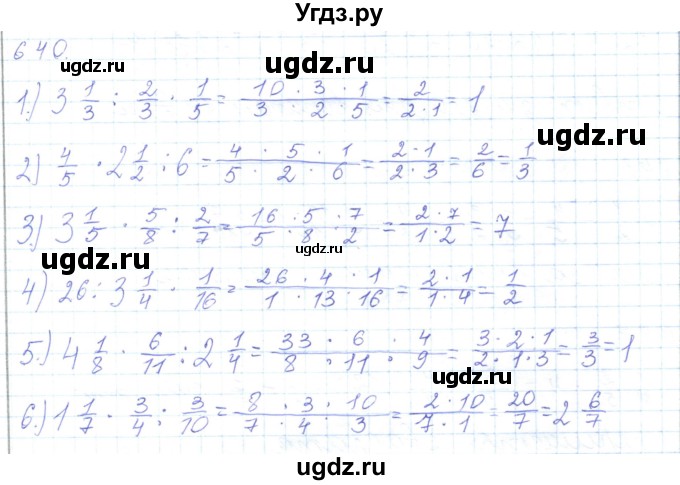 Угдз.ру
640
ugdz.ru ugdz.ru
1.) 3 1/3 : 2/3 · 1/5 = 10 · 3 · 1 / 3 · 2 · 5 = 2 / 2·1 = 1
ugdz.ru
2) 4/5 · 2 1/2 : 6 = 4 · 5 · 1 / 5 · 2 · 6 = 2·1 / 2·3 = 2/6 = 1/3
3.) 3 1/5 · 5/8 : 2/7 = 16 · 5 · 7 / 5 · 8 · 2 = 2·7 / 1·2 = 7
ugdz.ru ugdz.ru
4.) 26 : 3 1/4 · 1/16 = 26 · 4 · 1 / 1 · 13 · 16 = 2·1 / 1·4 = 1/2
5.) 4 1/8 · 6/11 : 2 1/4 = 33 · 6 · 4 / 8 · 11 · 9 = 3·2·1 / 2·1·3 = 3/3 = 1
ugdz.ru ugdz.ru
6.) 1 1/7 · 3/4 : 3/10 = 8 · 3 · 10 / 7 · 4 · 3 = 2·10 / 7·1 = 20/7 = 2 6/7
ugdz.ru